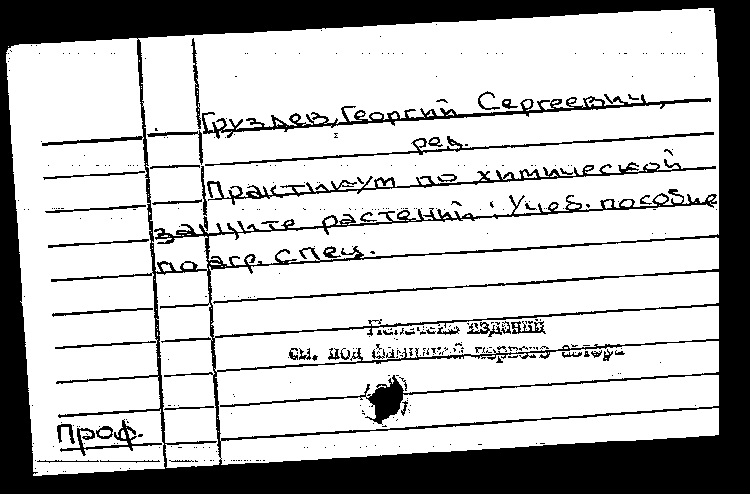 Груздев, Георгий Сергеевич,
ред.
Практикум по химической
защите растений : Учеб. пособие
по агр. спец.
Перечень изданий
см. под фамилией первого автора
Проф.